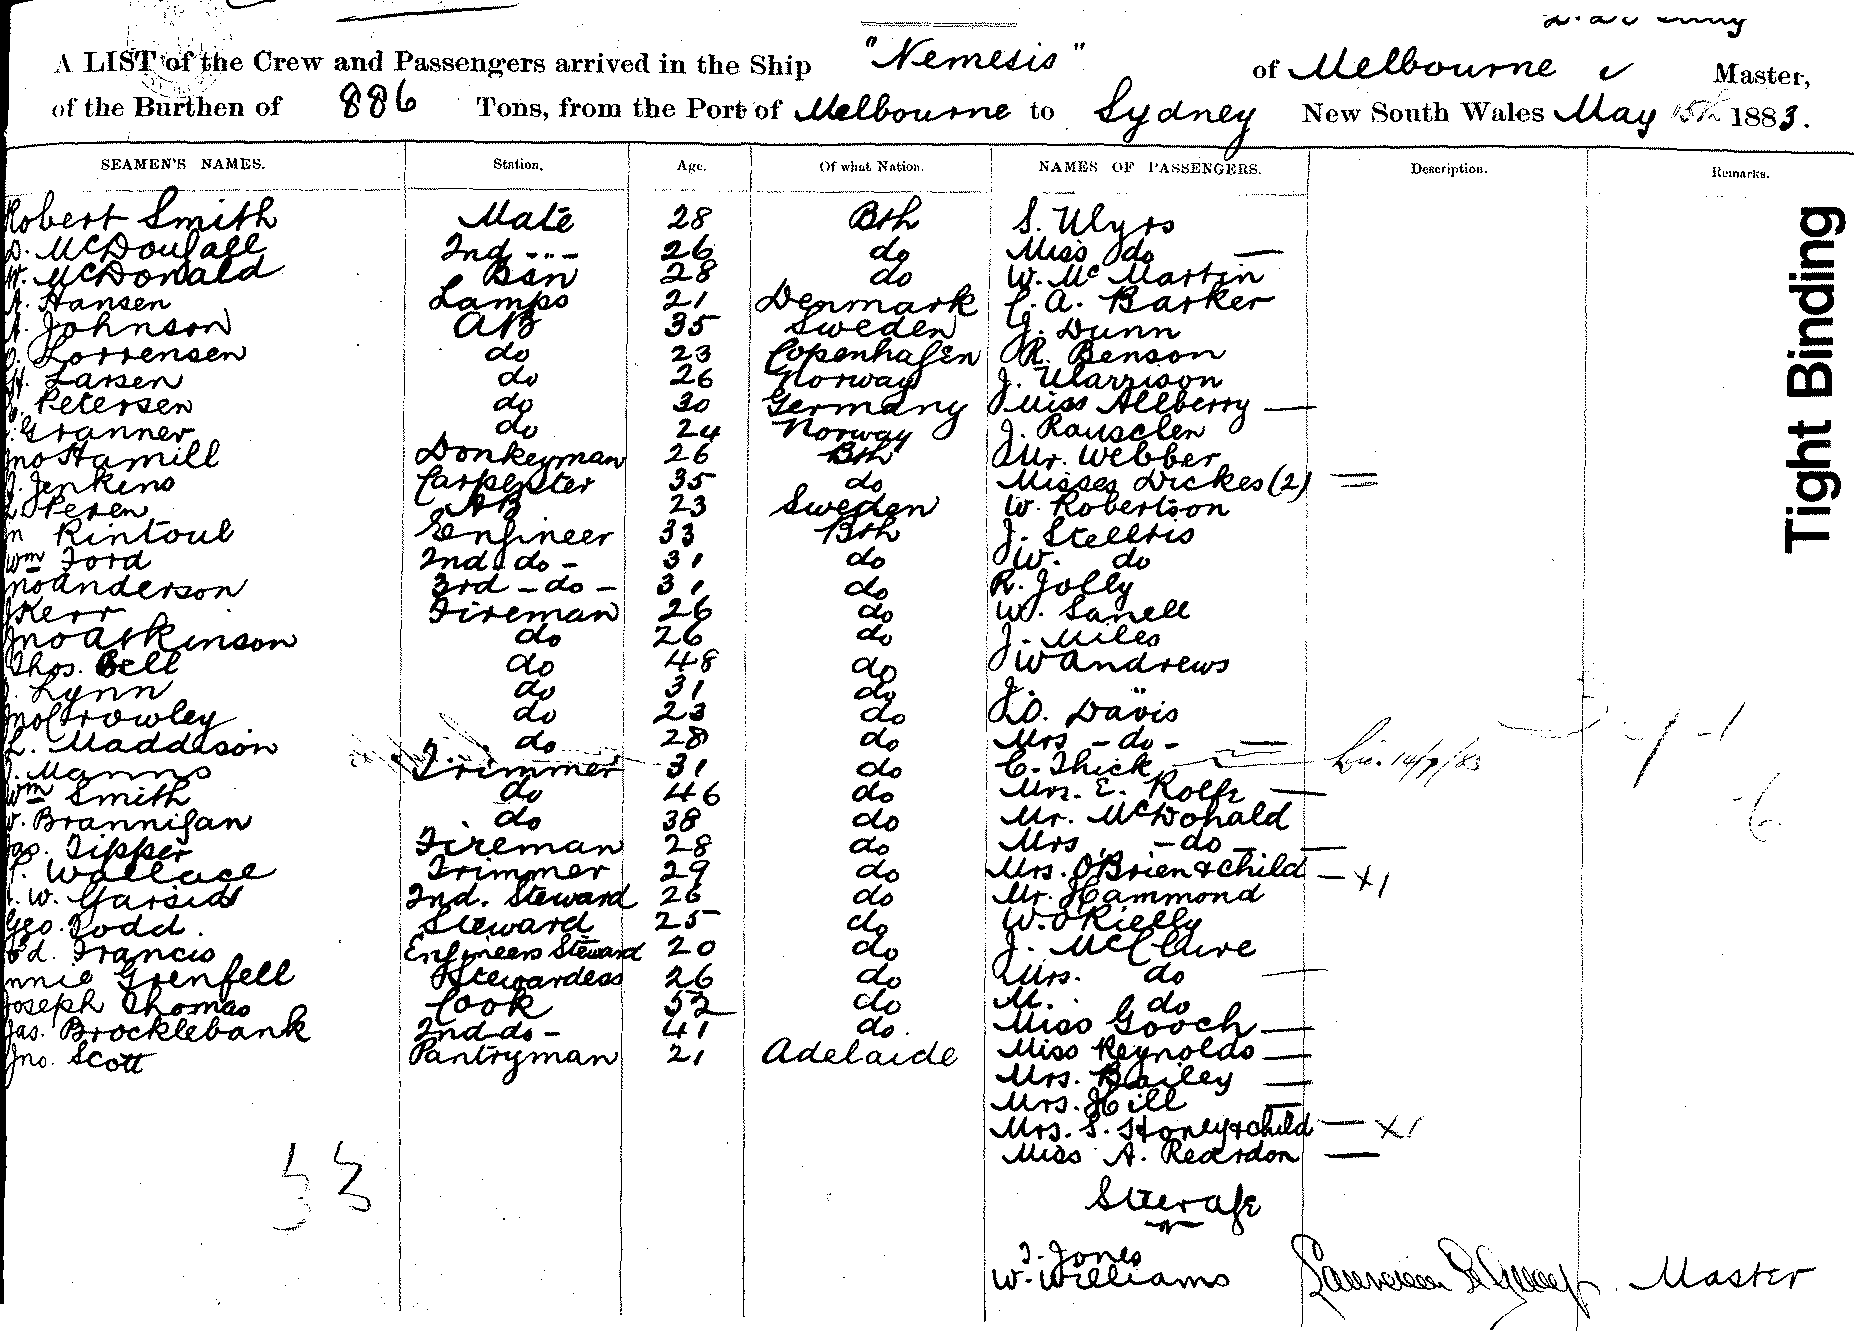 A LIST of the Crew and Passengers arrived in the Ship "Nemesis" of Melbourne Master,
of the Burthen of 886 Tons, from the Port of Melbourne to Sydney New South Wales May 15th 1883.
SEAMEN'S NAMES. Station. Age. Of what Nation. NAMES OF PASSENGERS. Description. Remarks.
Robert Smith Mate 28 Bth S.
McDougall 2nd --- 26 do Miss do —
McDonald Bsn 28 do W. McMartin
Hansen Lamps 21 Denmark C. A. Barker
Johnson AB 35 Sweden G. Dunn
Lorrensen do 23 Copenhagen R. Benson
Larsen do 26 Norway J.
Petersen do 30 Germany Miss Allberry —
Granner do 24 Norway J.
Jno Hamill Donkeyman 26 Bth Mr. Webber
Jenkins Carpenter 35 do Misses Dickes (2) =
AB 23 Sweden W. Robertson
Rintoul Engineer 33 Bth J.
Wm Ford 2nd do - 31 do W. do
Jno Anderson 3rd - do - 31 do R. Jolly
Kerr Fireman 26 do W.
Jno Atkinson do 26 do J. Miles
Thos. Bell do 48 do W Andrews
Lynn do 31 do J.
Jno Crowley do 23 do D. Davis
L. Maddison do 28 do Mrs - do - —
Manns Trimmer 31 do C. Thick
Wm Smith do 46 do Mrs. E. Rolfe —
Brannigan do 38 do Mr. McDonald
Jas. Tipper Fireman 28 do Mrs - do - —
Wallace Trimmer 29 do Mrs. O'Brien & child — x1
W. Garside 2nd. Steward 26 do Mr. Hammond
Geo. Todd. Steward 25 do W. O'Rielly
Francis Engineers Steward 20 do J. McClure
Grenfell Stewardess 26 do Mrs. do —
Joseph Thomas Cook 52 do M. do
Jas. Brocklebank 2nd do - 41 do. Miss Gooch —
Jno. Scott Pantryman 21 Adelaide Miss Reynolds —
Mrs. Bailey —
Mrs. Hill —
Mrs. S. Honey & child — x1
Miss A. Reardon —
33
Steerage
J. Jones
W. Williams Master
Tight Binding